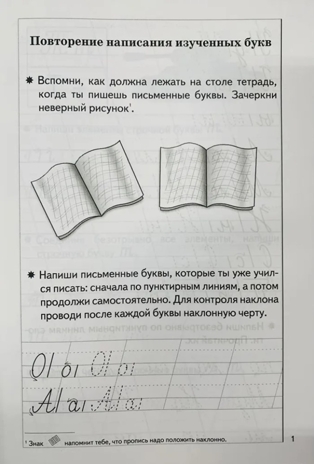 Повторение написания изученных букв
✷ Вспомни, как должна лежать на столе тетрадь,
когда ты пишешь письменные буквы. Зачеркни
неверный рисунок¹.
✷ Напиши письменные буквы, которые ты уже учил-
ся писать: сначала по пунктирным линиям, а потом
продолжи самостоятельно. Для контроля наклона
проводи после каждой буквы наклонную черту.
О/ о/ О/ о/
А/ а/ А/ а/
¹ Знак напомнит тебе, что пропись надо положить наклонно.
1